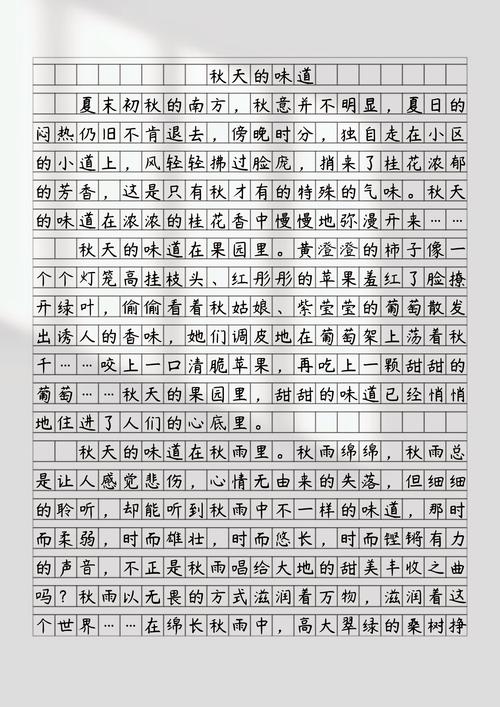 秋天的味道
夏末初秋的南方，秋意并不明显，夏日的
闷热仍旧不肯退去，傍晚时分，独自走在小区
的小道上，风轻轻拂过脸庞，捎来了桂花浓郁
的芳香，这是只有秋才有的特殊的气味。秋天
的味道在浓浓的桂花香中慢慢地弥漫开来……
秋天的味道在果园里。黄澄澄的柿子像一
个个灯笼高挂枝头、红彤彤的苹果羞红了脸撩
开绿叶，偷偷看着秋姑娘、紫莹莹的葡萄散发
出诱人的香味，她们调皮地在葡萄架上荡着秋
千……咬上一口清脆苹果，再吃上一颗甜甜的
葡萄……秋天的果园里，甜甜的味道已经悄悄
地住进了人们的心底里。
秋天的味道在秋雨里。秋雨绵绵，秋雨总
是让人感觉悲伤，心情无由来的失落，但细细
的聆听，却能听到秋雨中不一样的味道，那时
而柔弱，时而雄壮，时而悠长，时而铿锵有力
的声音，不正是秋雨唱给大地的甜美丰收之曲
吗？秋雨以无畏的方式滋润着万物，滋润着这
个世界……在绵长秋雨中，高大翠绿的桑树挣